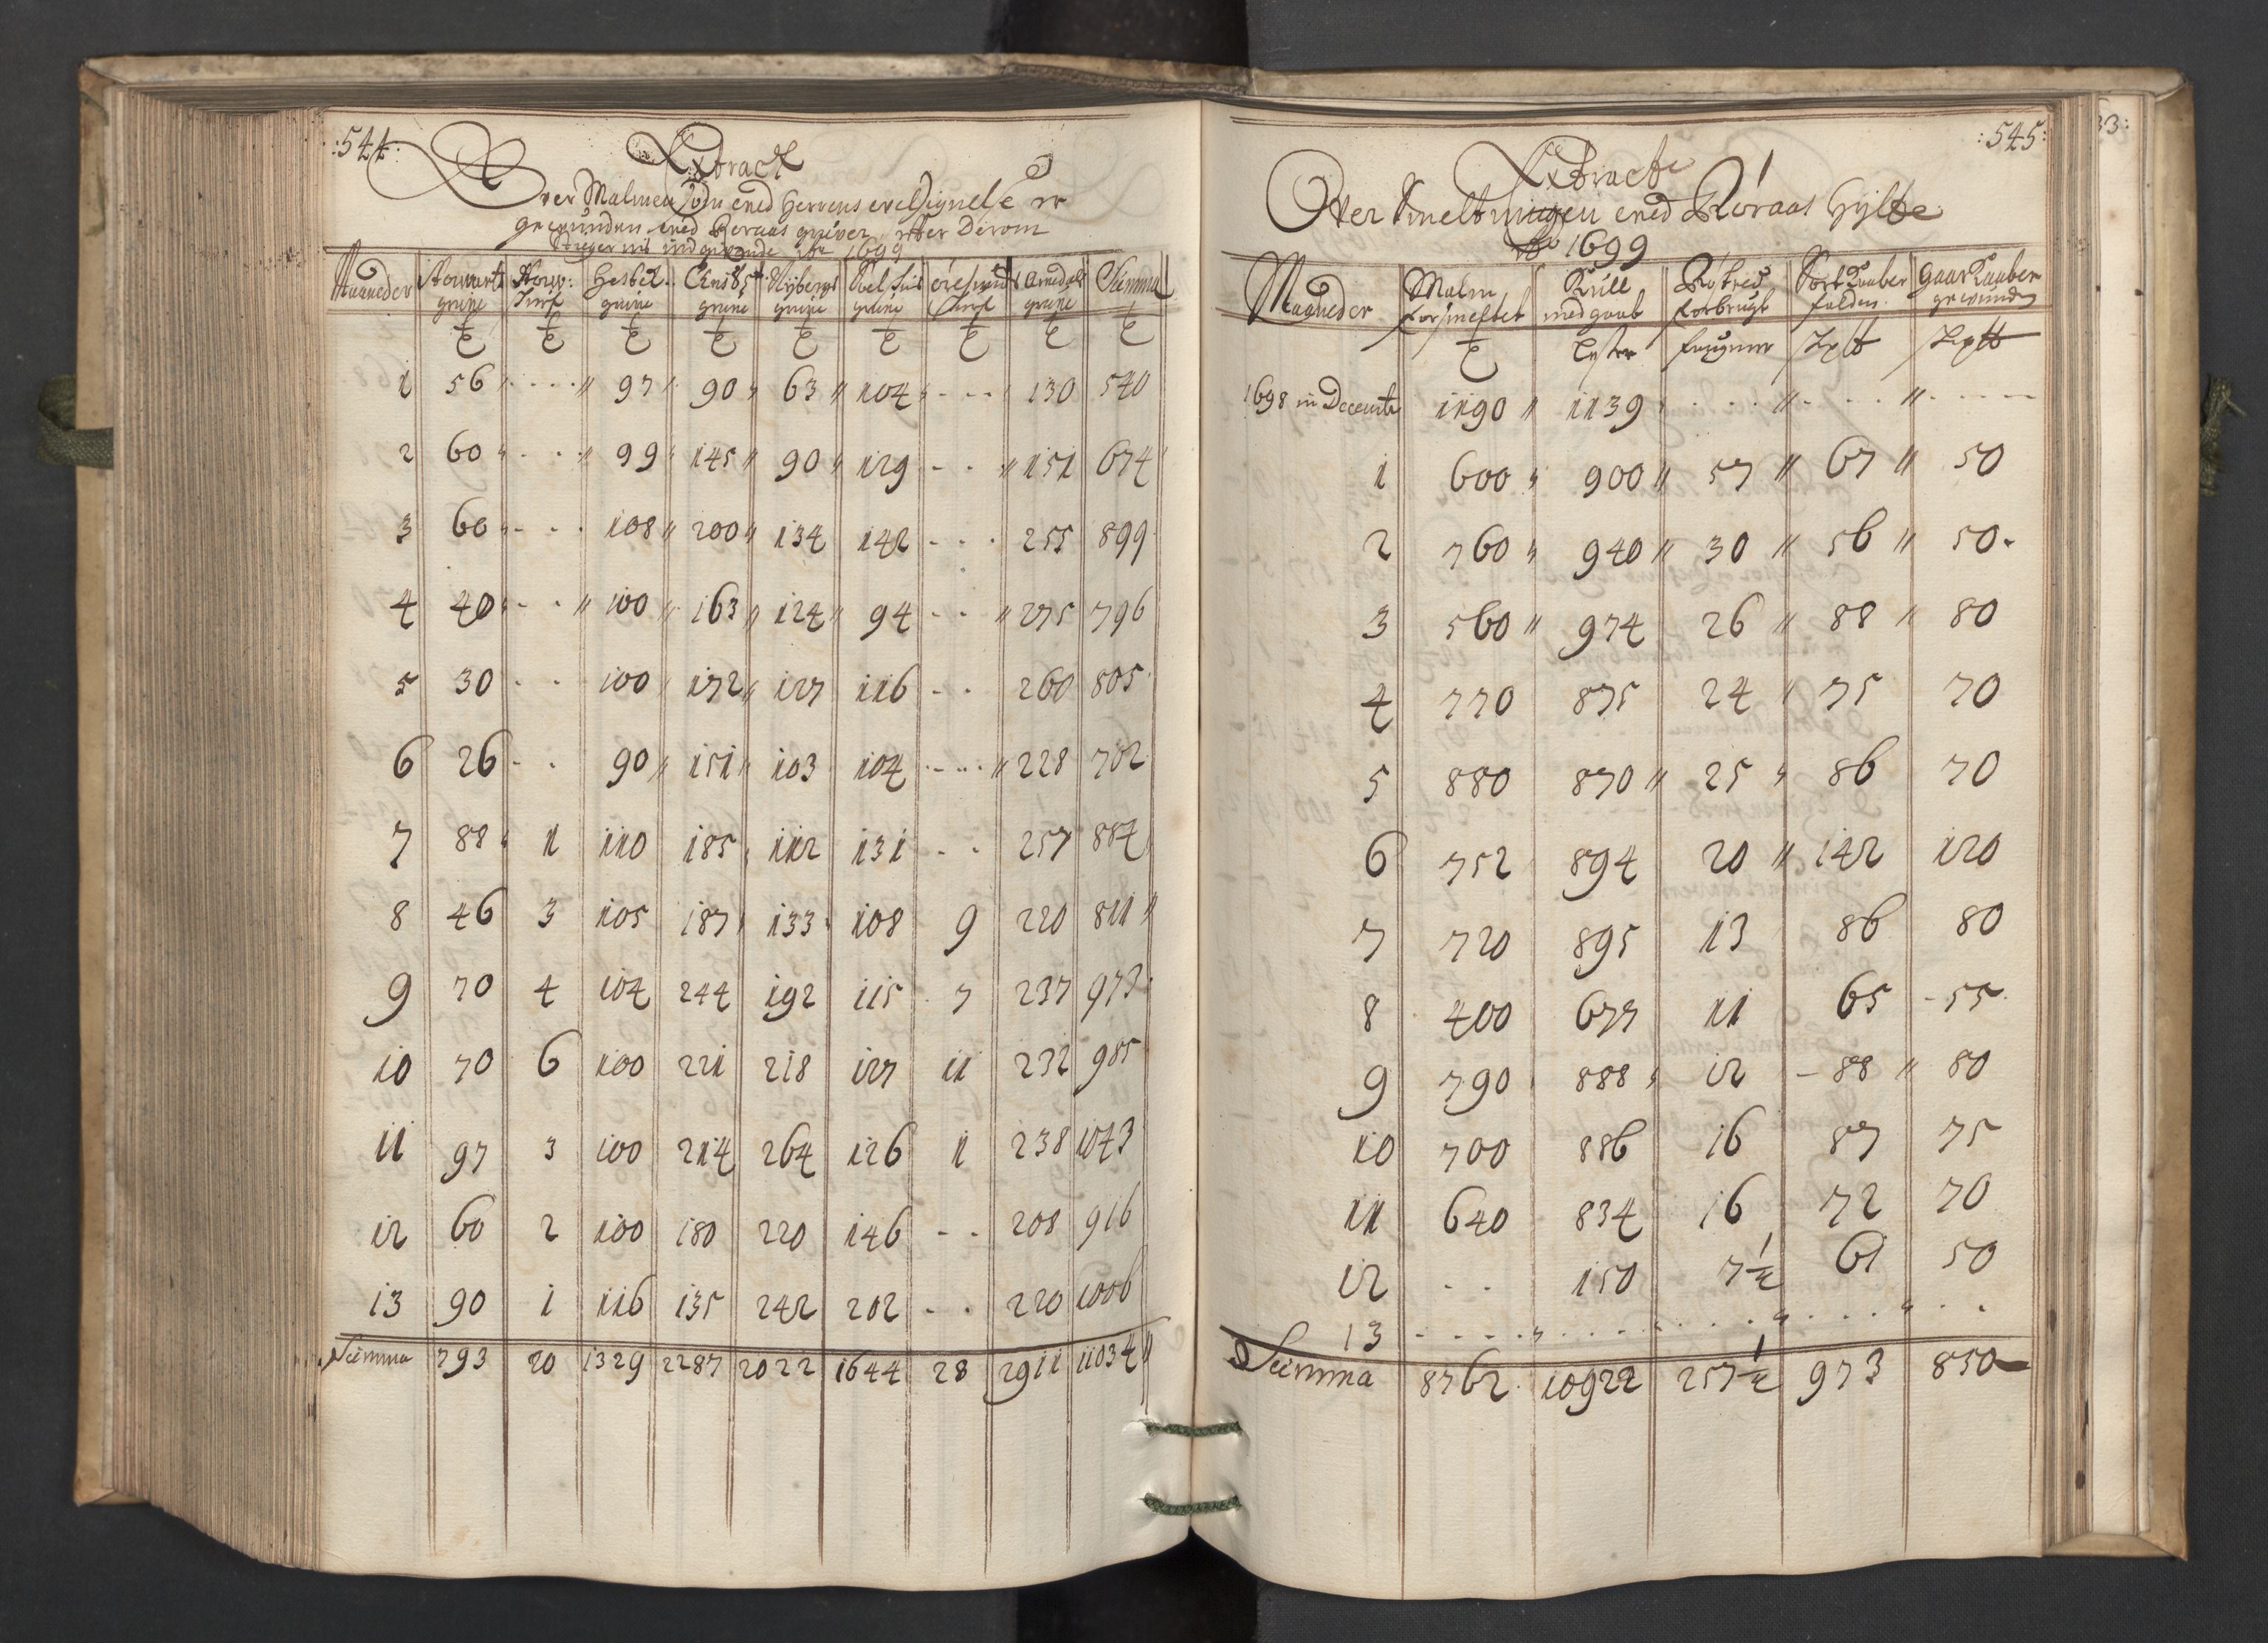 :544:
Extract
Over Malmen som med Herrens velsignelse er
gewunden med Røraas gruver
1699
Maaneder Storwarts grube Herbet. grube Christ grube Nyberget grube grube Arvedals grube Summa
1 56 97 90 63 104 130 540
2 60 99 145 90 129 151 674
3 60 108 200 134 142 255 899
4 40 100 163 124 94 275 796
5 30 100 172 127 116 260 805
6 26 90 151 103 104 228 702
7 88 1 110 185 112 131 257 884
8 46 3 105 187 133 108 9 220 811
9 70 4 104 244 192 115 7 237 973
10 70 6 100 221 218 127 11 232 985
11 97 3 100 214 264 126 1 238 1043
12 60 2 100 180 220 146 208 916
13 90 1 116 135 242 202 220 1006
Summa 793 20 1329 2287 2022 1644 28 2911 11034
:545:
Extract
Over Smeltningen med Røraas Hytte
Ao 1699
Maaneder Malm forsmeltet Kull medgaat Røstved forbrugt Sort Kaaber falden Gaar Kaaber gewunden
Lester
1698 in Decemb 1190 1139
1 600 900 57 67 50
2 760 940 30 56 50
3 560 974 26 88 80
4 770 875 24 75 70
5 880 870 25 86 70
6 752 894 20 142 120
7 720 895 13 86 80
8 400 677 11 65 55
9 790 888 12 88 80
10 700 886 16 87 75
11 640 834 16 72 70
12 150 7½ 61 50
13
Summa 8762 10922 257½ 973 850
33: